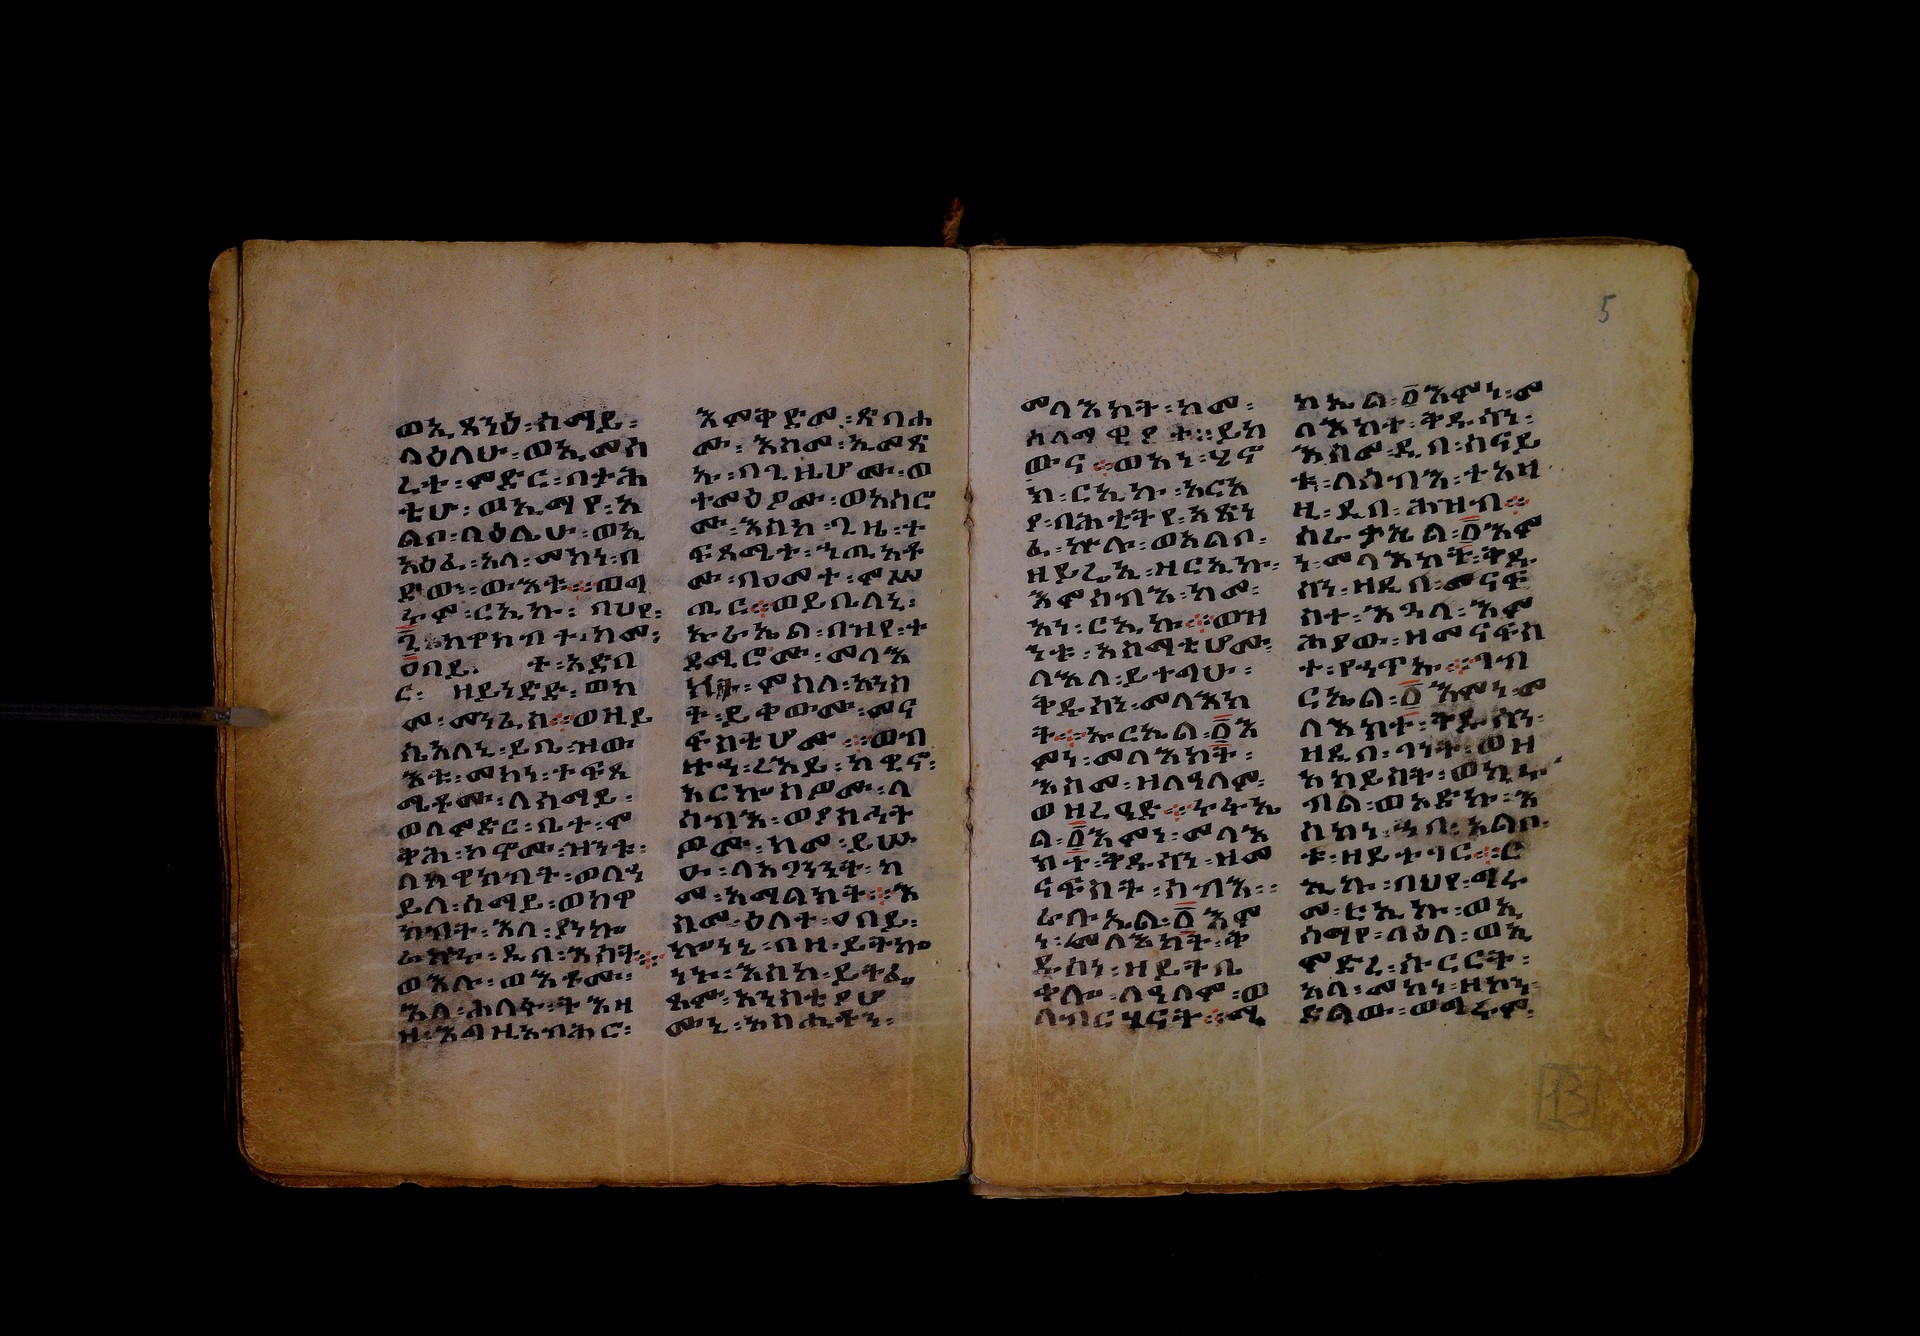 ወኢጽንዕ፡ሰማይ፡
ላዕለሁ፡ወኢመሰ
ረተ፡ምድር፡በታሕ
ቴሁ፡ወኢማየ፡አ
ልቦ፡በዕሌሁ፡ወኢ
አዕፈ፡አላ፡መካን፡በ
ድው፡ውእቱ፡፡ወግ
ሩም፡ርኢኩ፡በህየ፡
፯፡ከዋክብተ፡ከመ፡
ዐበይ፡ ተ፡አድባ
ር፡ ዘይነድድ፡ወከ
መ፡መንፈስ፡፡ወዘይ
ሴአለኒ፡ይቤ፡ዝው
እቱ፡መካን፡ተፍጻ
ሜቶሙ፡ለሰማይ፡
ወለምድር፡ቤተ፡ሞ
ቅሕ፡ኮኖሙ፡ዝንቱ፡
ለከዋክብት፡ወለኀ
ይለ፡ሰማይ፡ወከዋ
ክብት፡እለ፡ያንኰ
ረኵሩ፡ዲበ፡እሳት፡፡
ወእሉ፡ውእቶሙ፡
እለ፡ኀለፉ፡ትእዛ
ዘ፡እግዚአብሔር፡
እምቅድመ፡ጽባሖ
ሙ፡እስመ፡ኢመጽ
ኡ፡በጊዜሆሙ፡ወ
ተምዕዖሙ፡ወአሰሮ
ሙ፡እስከ፡ጊዜ፡ተ
ፍጻሜተ፡ኀጢአቶ
ሙ፡በዓመተ፡ምሥ
ጢር፡፡ወይቤለኒ፡
ኡራኤል፡በዝየ፡ተ
ደሚሮሙ፡መላእ
ክት፡ምስለ፡አንስ
ት፡ይቀውሙ፡መና
ፍስቲሆሙ፡፡ወብ
ዙኀ፡ረእይ፡ከዊኖ፡
አርኰስዎሙ፡ለ
ሰብእ፡ወያስሕት
ዎሙ፡ከመ፡ይሡ
ዑ፡ለአጋንንት፡ከ
መ፡አማልክት፡፡እ
ስመ፡ዕለተ፡ዐበይ፡
ኰነኒ፡በዘ፡ይትኰ
ነኑ፡እስከ፡ይትፌ
ጸሙ፡አንስቲያሆ
ሙኒ፡አስሒቶን፡
መላእክት፡ከመ፡
ሰላማዊያት፡፡ይከ
ውና፡፡ወአነ፡ሄኖ
ክ፡ርኢኩ፡አርአ
ያ፡ባሕቲትየ፡አጽና
ፈ፡ኵሉ፡ወአልቦ፡
ዘይሬኢ፡ዘርኢኩ፡
እምሰብእ፡ከመ፡
አነ፡ርኢኩ፡፡ወዝ
ንቱ፡አስማቲሆሙ፡
ለእለ፡ይተግሁ፡
ቅዱሳን፡መላእክ
ት፡፡ኡርኤል፡፩እ
ምነ፡መላእክት፡
እስመ፡ዘለዓለም፡
ወዘረዓድ፡፡ሩፋኤ
ል፡፩እምነ፡መላእ
ክት፡ቅዱሳን፡ዘመ
ናፍስት፡ሰብእ፡፡
ራጉኤል፡፩እም
ነ፡መላእክት፡ቅ
ዱሳን፡ዘይትቤ
ቀሎ፡ለዓለም፡ወ
ለብርሃናት፡፡ሚ
ካኤል፡፩እምነ፡መ
ላእክት፡ቅዱሳን፡
እስመ፡ዲበ፡ሠናይ
ቱ፡ለሰብእ፡ተአዘ
ዚ፡ዲበ፡ሕዝብ፡፡
ሰራቃኤል፡፩እም
ነ፡መላእክት፡ቅዱ
ሳን፡ዘዲበ፡መናፍ
ስተ፡እጓለ፡እመ
ሕያው፡ዘመናፍስ
ተ፡የኀጥኡ፡፡ገብ
ርኤል፡፩እምነ፡መ
ላእክት፡ቅዱሳን፡
ዘዲበ፡ገነት፡ወዘ
አክይስት፡ወኪሩ
ብል፡ወአድኩ፡እ
ስከነ፡ኀበ፡አልቦ፡
ቱ፡ዘይትገር፡፡ር
ኢኩ፡በህየ፡ግሩ
መ፡ርኢኩ፡ወኢ
ሰማየ፡ላዕለ፡ወኢ
ምድረ፡ሱርርት፡
አላ፡መካነ፡ዘኮነ፡
ድልው፡ወግሩም፡
5
13